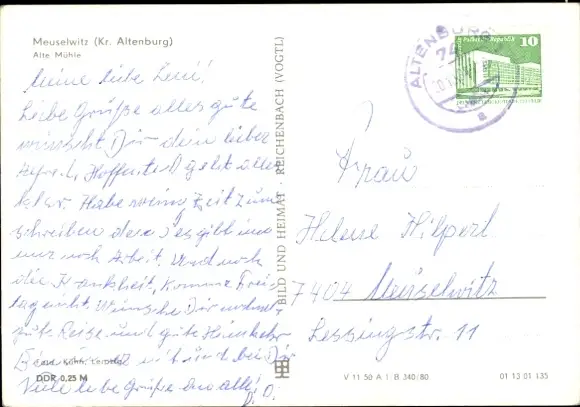 Meuselwitz (Kr. Altenburg)
Alte Mühle
Meine liebe Leni!
Liebe Grüße alles gute
wünscht Dir dein lieber
Hoffentl. geht alles
klar. Habe wenig Zeit zum
schreiben denn es gibt
nur noch Arbeit. Und noch
die Krankheit, Komme Frei-
tag nicht. Wünsche Dir
gute Reise und gute Heimkehr
bei Dir
Viele liebe Grüße an alle!
DDR 0,25 M
BILD UND HEIMAT · REICHENBACH (VOGTL)
V 11 50 A 1 B 340/80
01 13 01 135
ALTENBURG
74
a
10
Frau
Helene Hilpert
7404 Meuselwitz
Lessingstr. 11